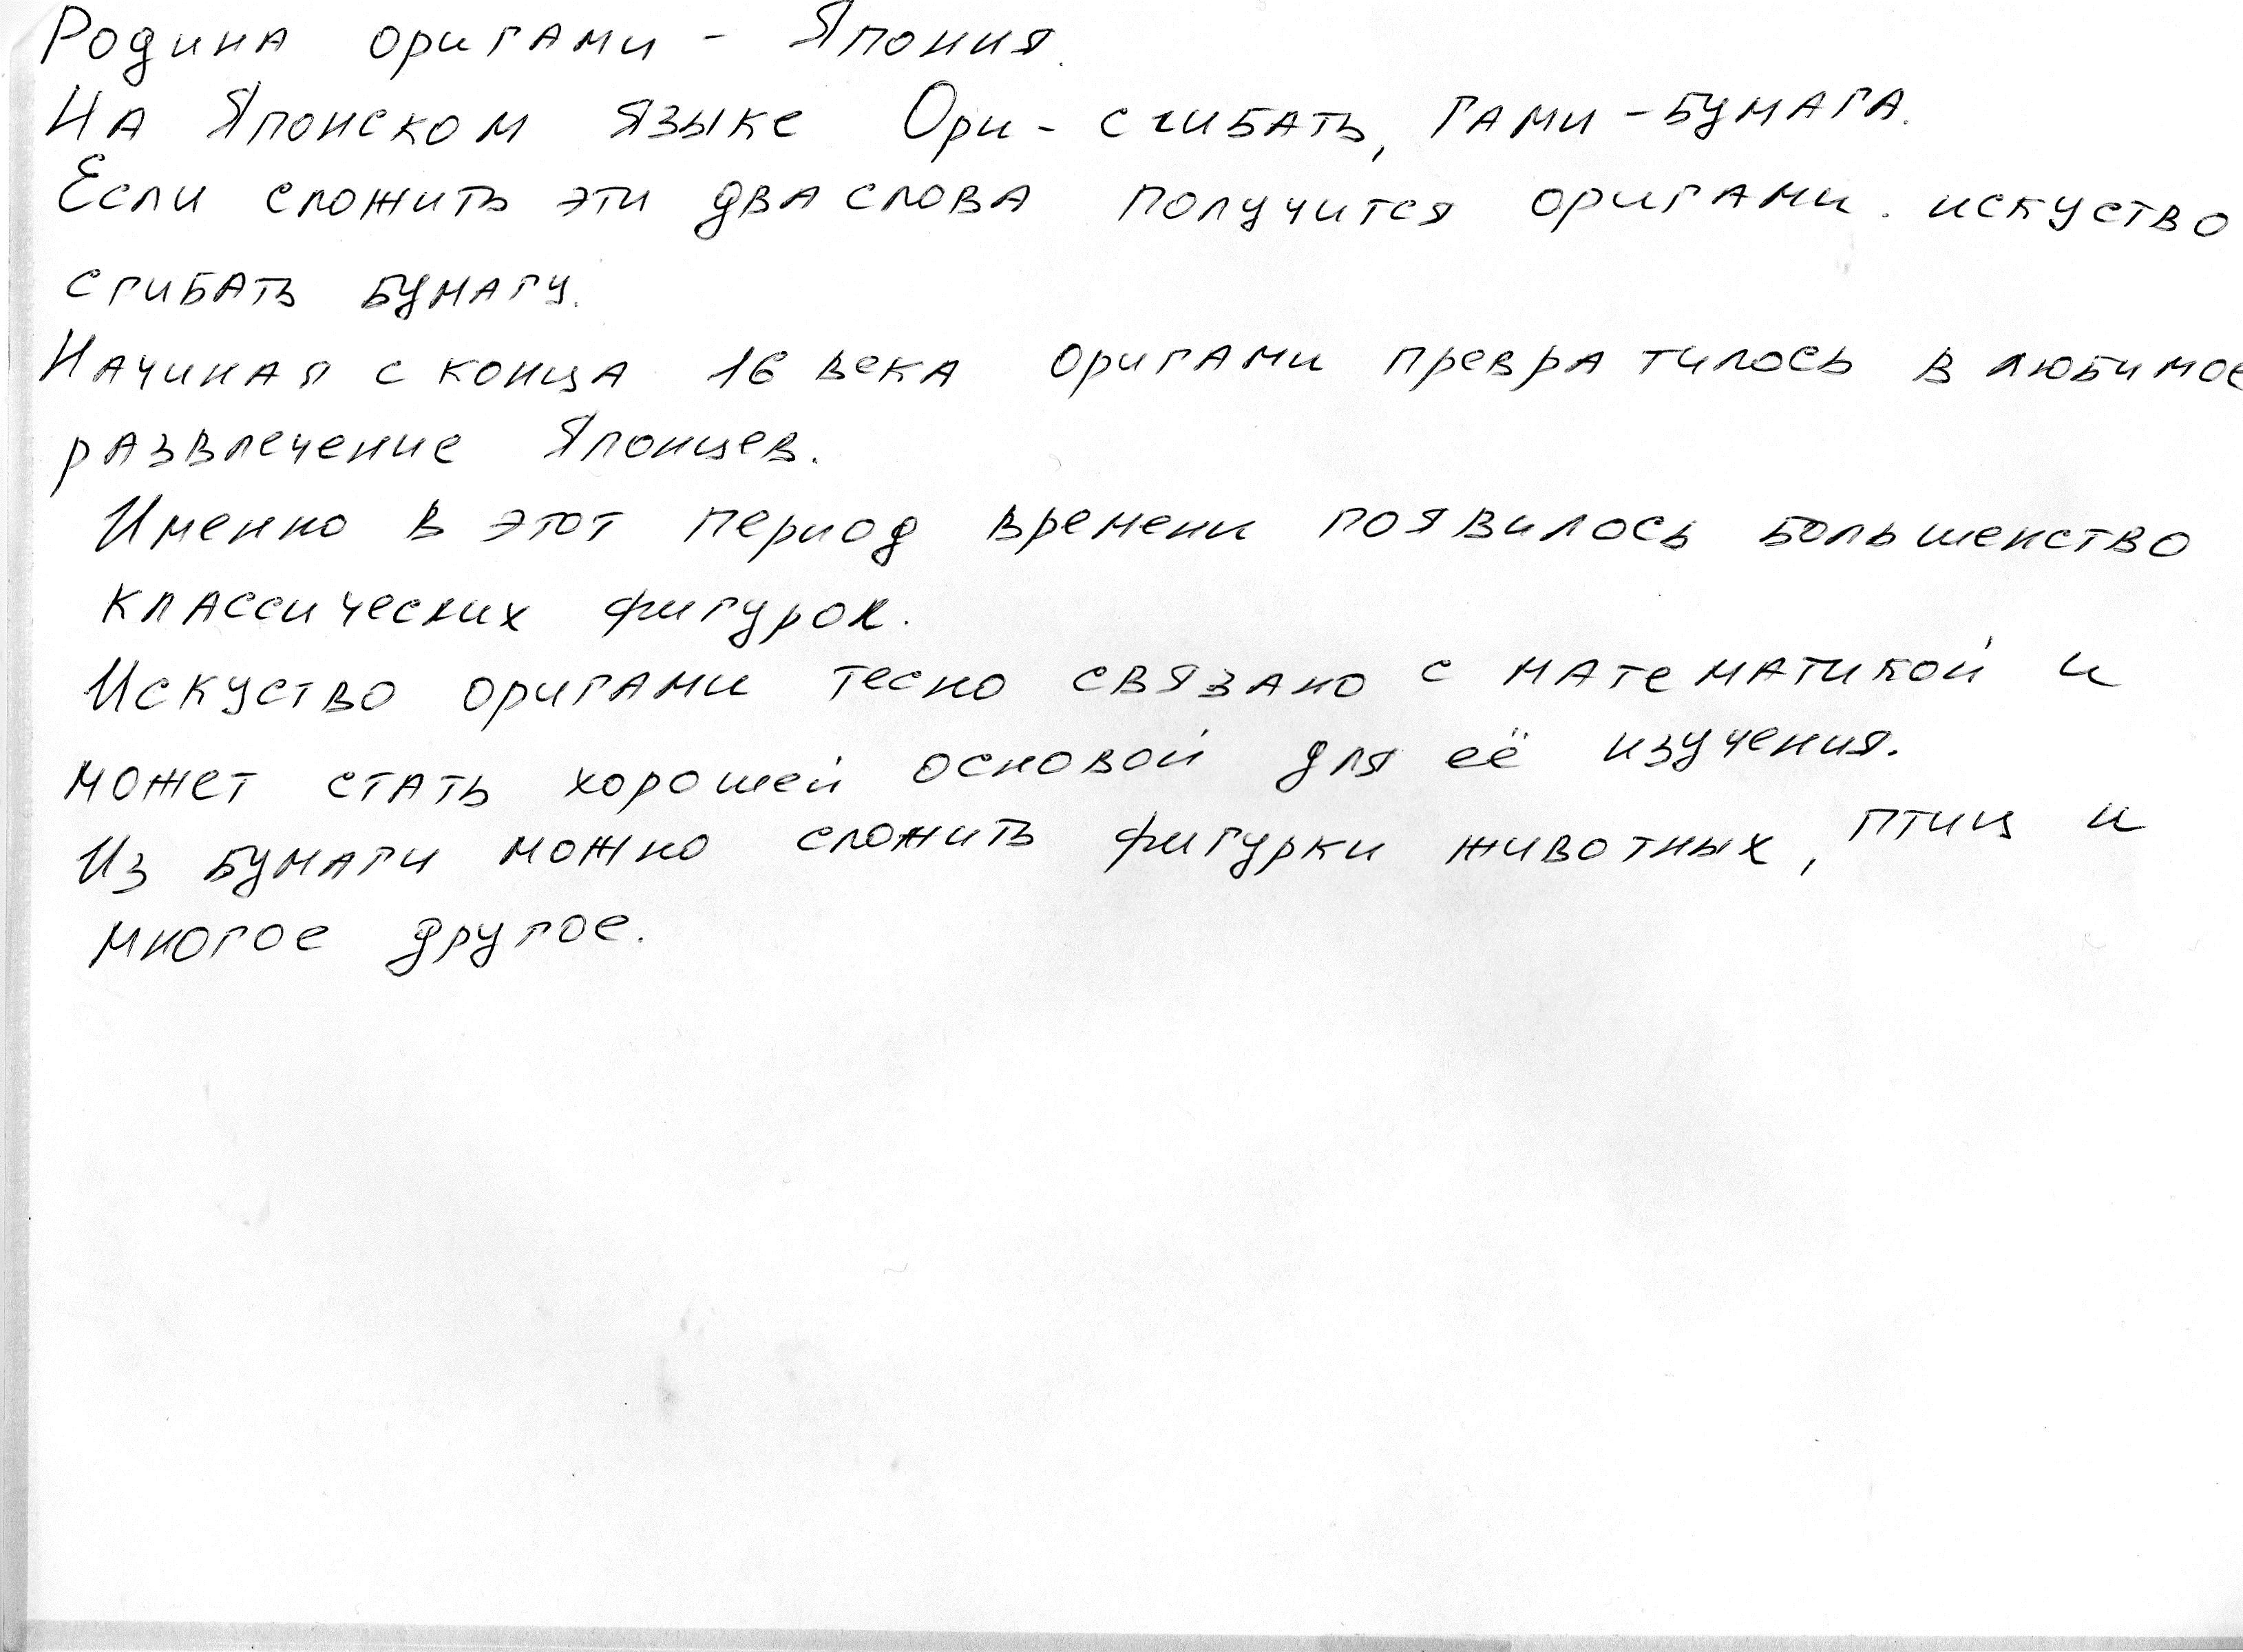 Родина оригами - Япония.
На Японском языке Ори - сгибать, гами - бумага.
Если сложить эти два слова получится оригами. искуство
сгибать бумагу.
Начиная с конца 16 века оригами превратилось в любимое
развлечение Японцев.
Именно в этот период времени появилось большенство
классических фигурок.
Искуство оригами тесно связано с математикой и
может стать хорошей основой для её изучения.
Из бумаги можно сложить фигурки животных, птиц и
многое другое.